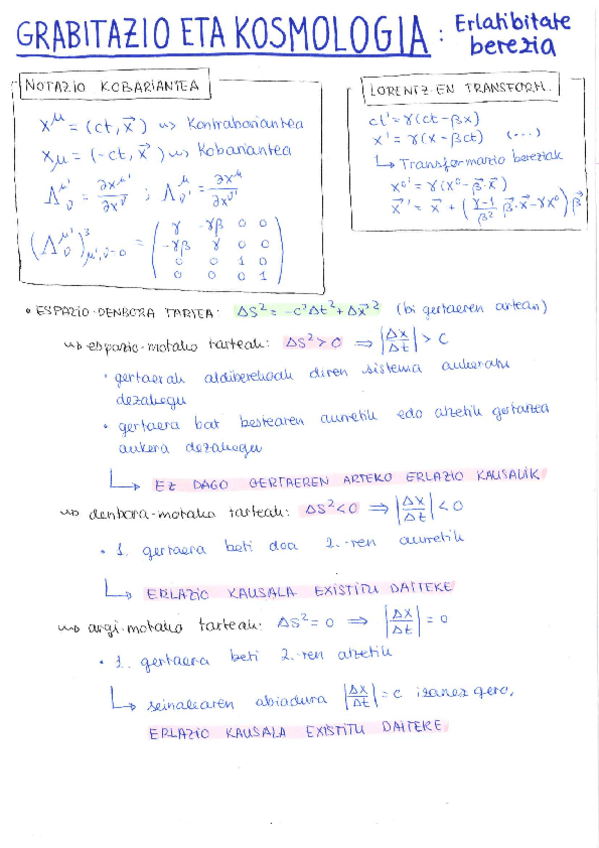 GRABITAZIO ETA KOSMOLOGIA: Erlatibitate berezia
NOTAZIO KOBARIANTEA
x^μ = (ct, x⃗) ⇝ Kontrabariantea
x_μ = (-ct, x⃗) ⇝ Kobariantea
Λ^μ'_ν = ∂x^μ'/∂x^ν ; Λ^μ_ν' = ∂x^μ/∂x^ν'
(Λ^μ'_ν)^3_μ',ν=0 = ( γ -γβ 0 0
-γβ γ 0 0
0 0 1 0
0 0 0 1 )
LORENTZ-EN TRANSFORM.
ct' = γ(ct - βx)
x' = γ(x - βct) (...)
↳ Transformazio bereziak
x^0' = γ(x^0 - β⃗·x⃗)
x⃗' = x⃗ + (γ-1/β² β⃗·x⃗ - γx^0) β⃗
• ESPAZIO-DENBORA TARTEA: ΔS² = -c²Δt² + Δx⃗² (bi gertaeren artean)
⇝ espazio-motako tarteak: ΔS² > 0 ⇒ |Δx/Δt| > c
• gertaerak aldiberekoak diren sistema aukeratu
dezakegu
• gertaera bat bestearen aurretik edo atzetik gertatzea
aukera dezakegu
↳ EZ DAGO GERTAEREN ARTEKO ERLAZIO KAUSALIK
⇝ denbora-motako tarteak: ΔS² < 0 ⇒ |Δx/Δt| < 0
• 1. gertaera beti doa 2.-ren aurretik
↳ ERLAZIO KAUSALA EXISTITU DAITEKE
⇝ argi-motako tarteak: ΔS² = 0 ⇒ |Δx/Δt| = 0
• 1. gertaera beti 2.-ren atzetik
↳ seinalearen abiadura |Δx/Δt| = c izanez gero,
ERLAZIO KAUSALA EXISTITU DAITEKE